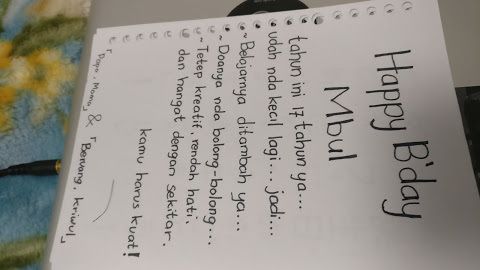 Happy B'day
Mbul
tahun ini 17 tahun ya...
udah nda kecil lagi... jadi...
~ Belajarnya ditambah ya...
~ Doanya nda bolong-bolong...
~ Tetep kreatif, rendah hati,
dan hangat dengan sekitar.
kamu harus kuat!
r Papa, Mama, & r Beruang, kriwul